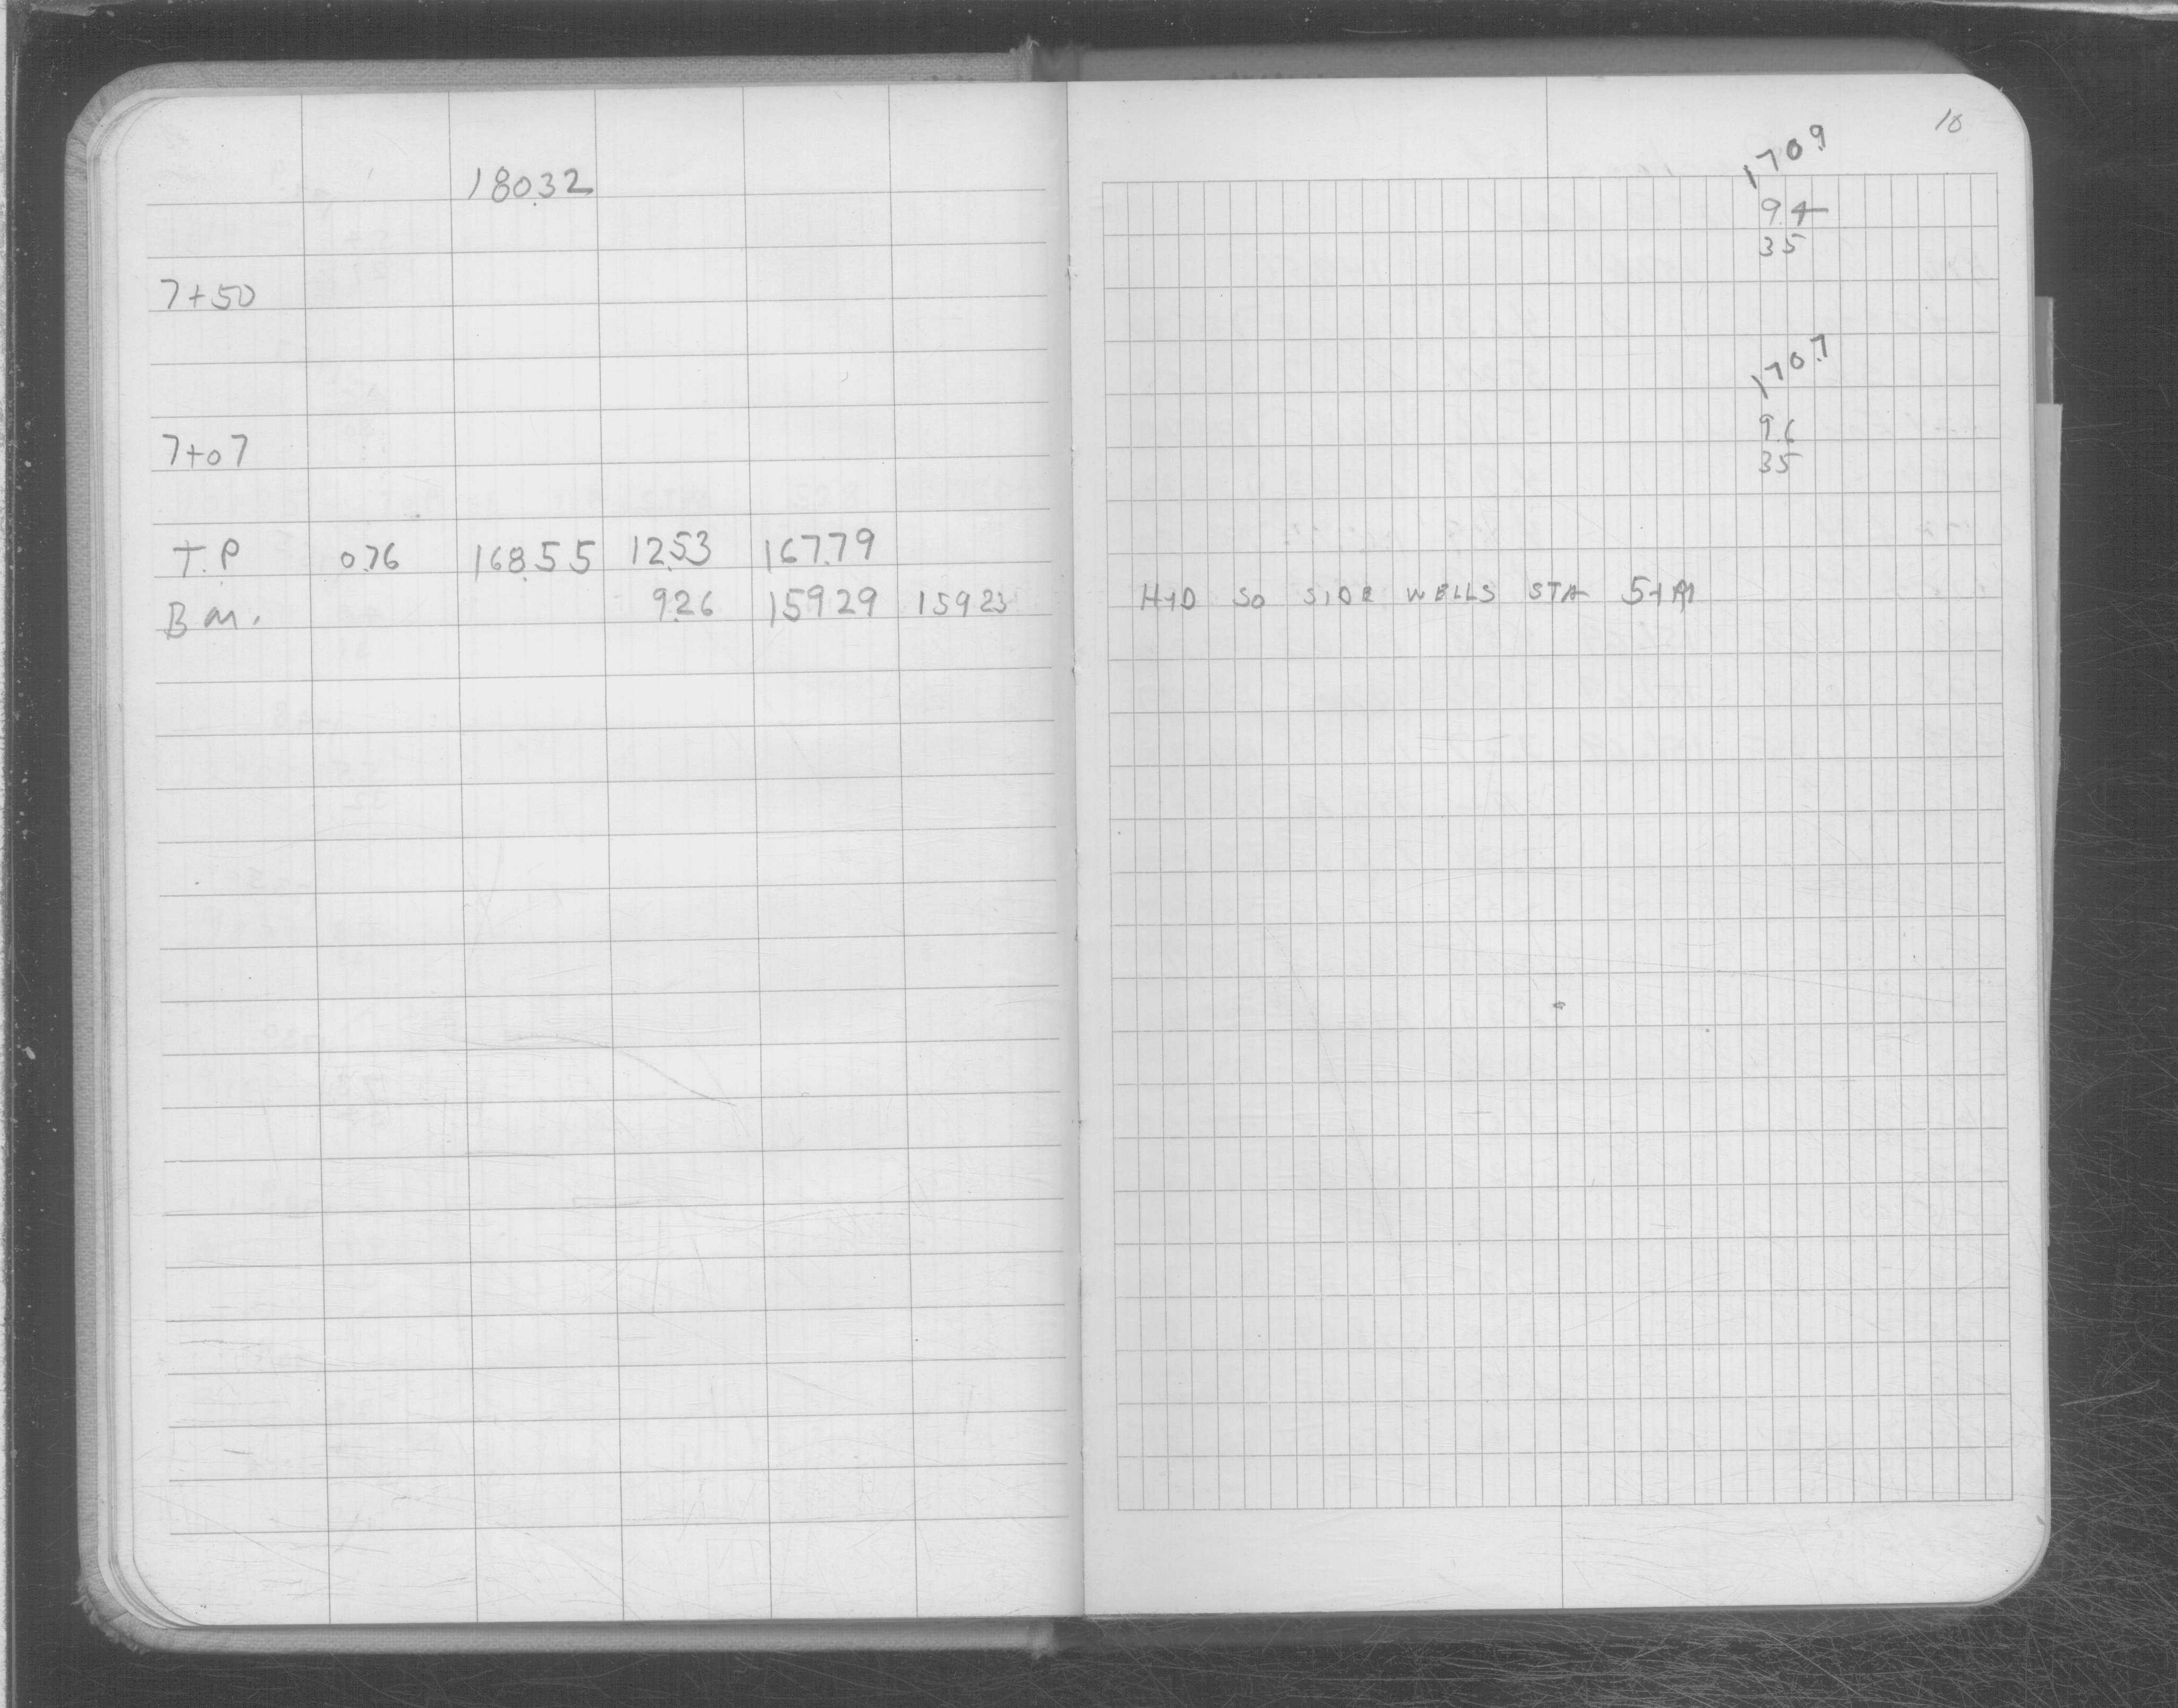 180.32
7+50
7+07
T.P 0.76 168.55 12.53 167.79
B m. 9.26 159.29 159 23
10
170.9
9.4
35
170.7
9.6
35
HYD SO SIDE WELLS STA